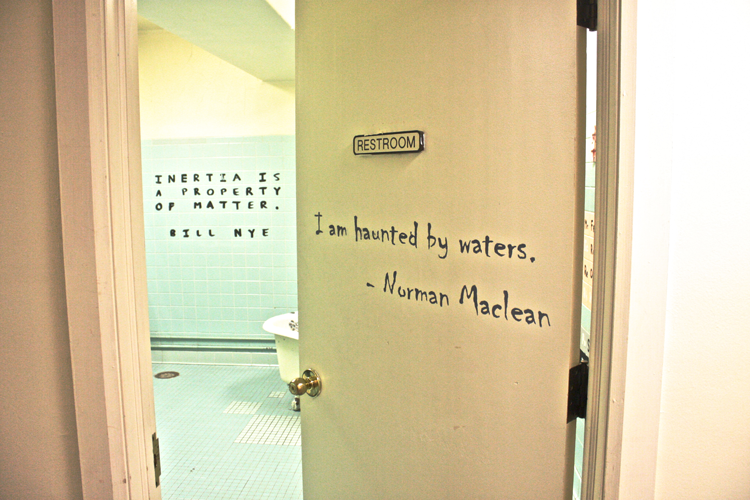 INERTIA IS
A PROPERTY
OF MATTER.
BILL NYE
RESTROOM
I am haunted by waters.
- Norman Maclean